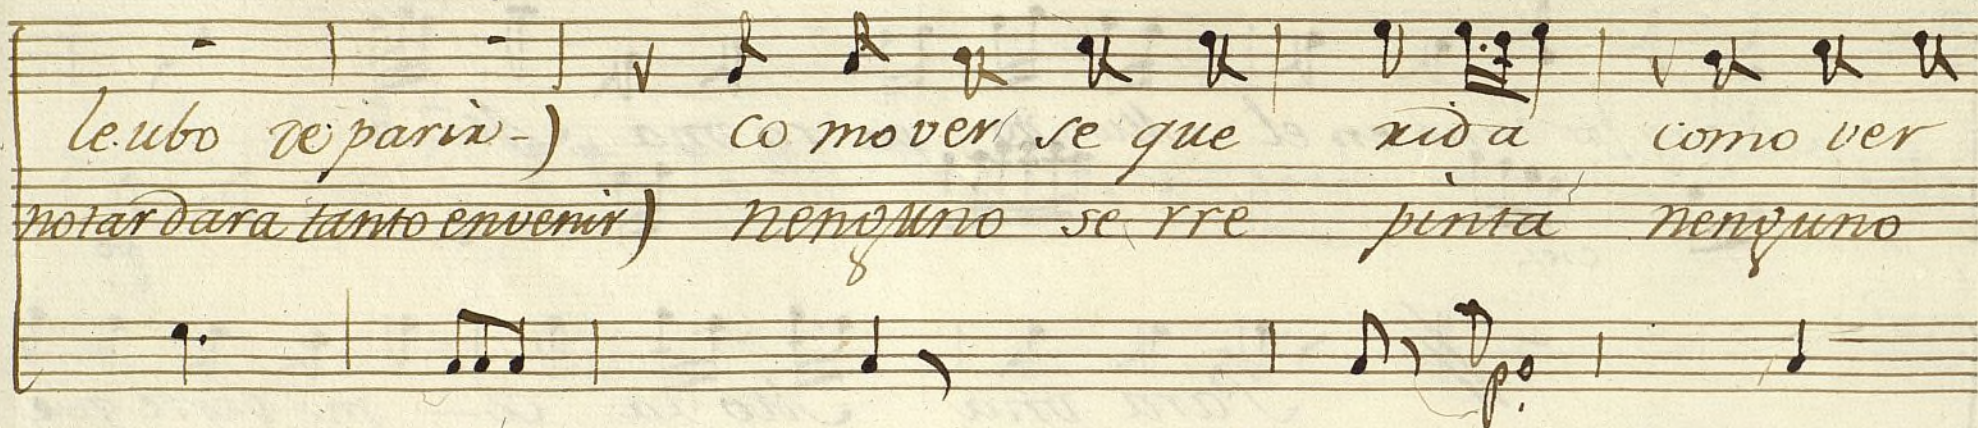 le ubo de parir-) co mo ver se que rida como ver
no tardara tanto en venir) nenguno se rre pinta nenguno
p.